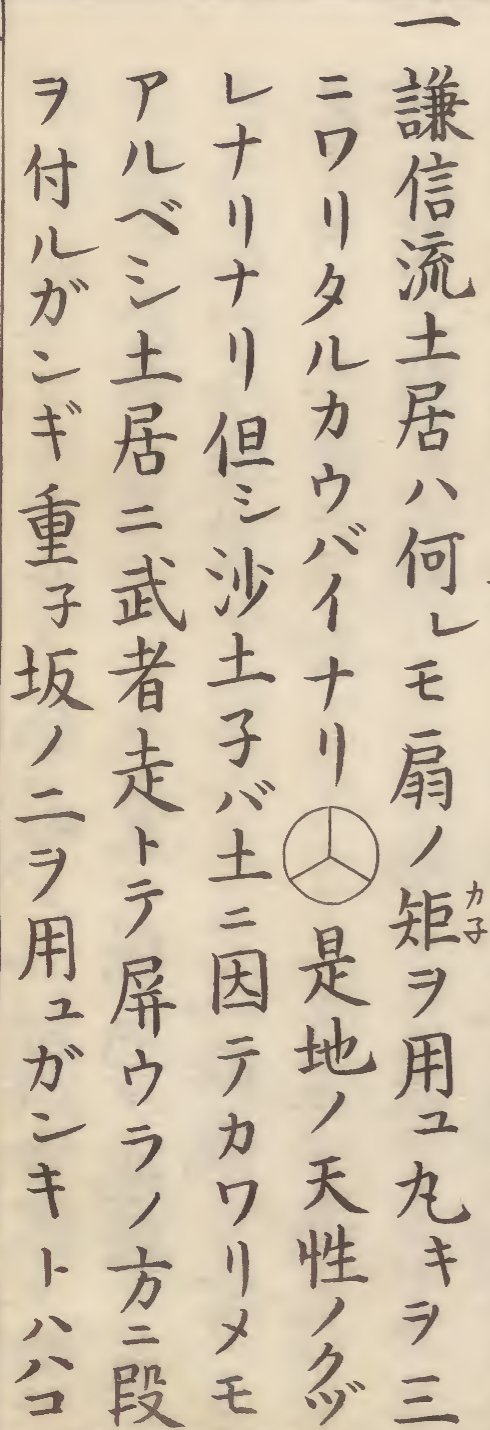 一謙信流土居ハ何レモ扇ノ矩ヲ用ユ丸キヲ三
カ子
ニワリタルカウバイナリ是地ノ天性ノクヅ
レナリナリ但シ沙土子バ土ニ因テカワリメモ
アルベシ土居ニ武者走トテ屏ウラノ方ニ段
ヲ付ルガンギ重子坂ノ二ヲ用ユガンキトハハコ